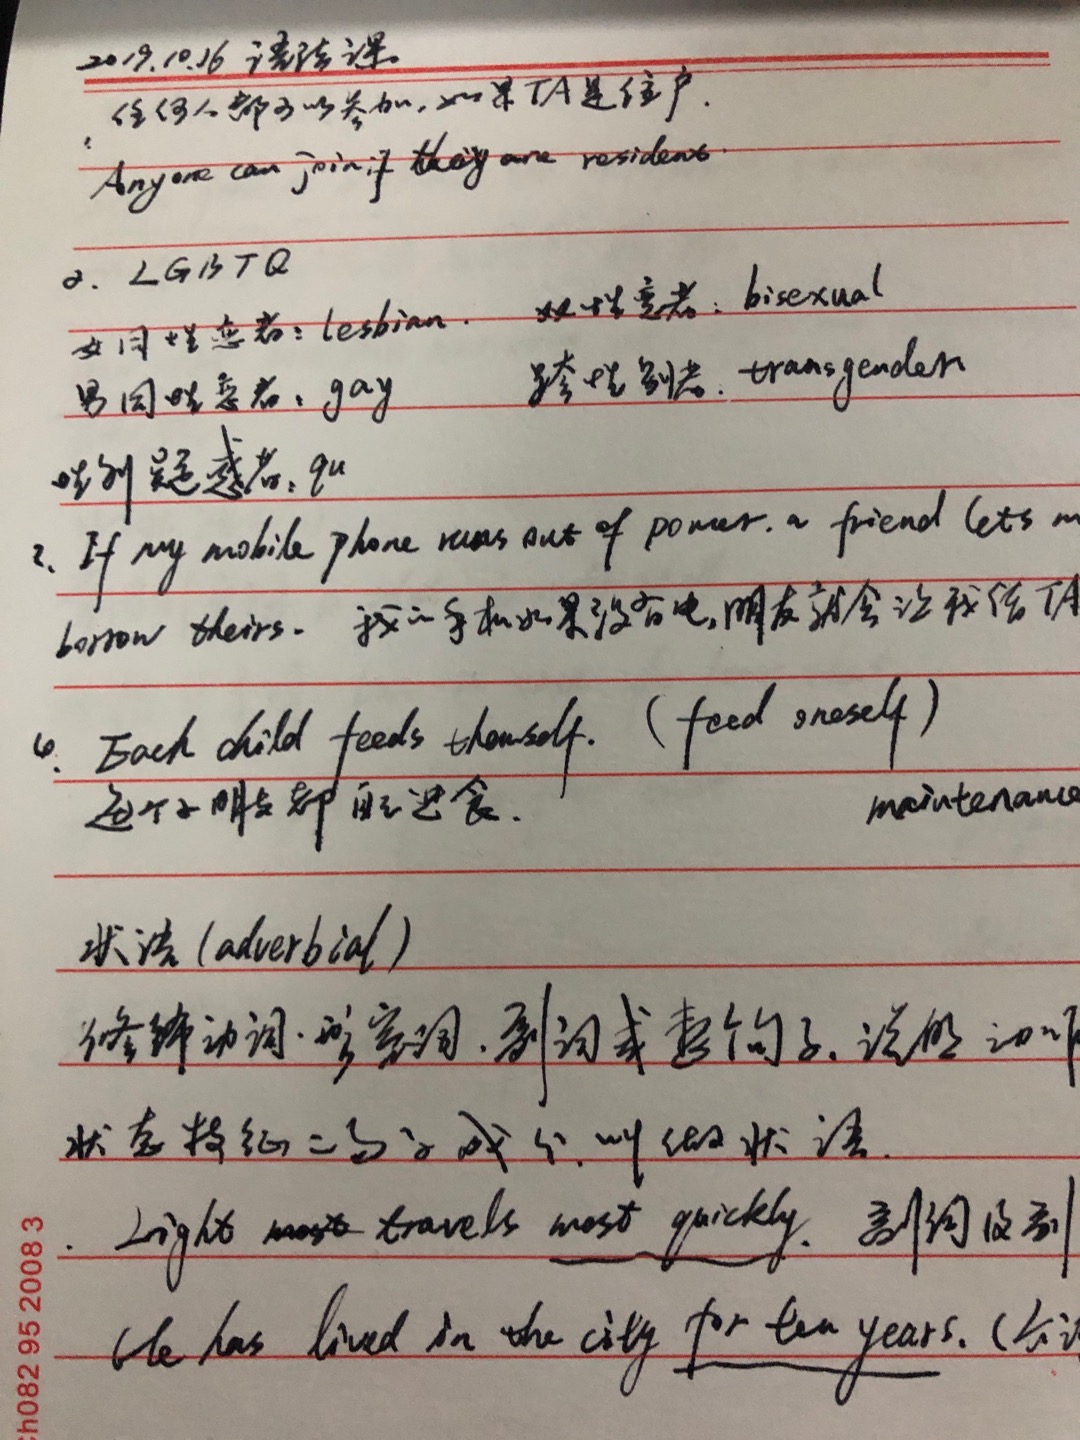 2019.10.16 语法课。
任何人都可以参加,如果TA是住户.
Anyone can join if they are resident.
2. LGBTQ
女同性恋者: lesbian. 双性恋者: bisexual
男同性恋者: gay 跨性别者. transgender
性别疑惑者: qu
If my mobile phone runs out of power. a friend lets m
borrow theirs. 我的手机如果没有电,朋友就会让我借TA
6. Each child feeds themself. (feed oneself)
每个小朋友都自己进食.
maintenance
状语 (adverbial)
修饰动词.形容词.副词或整个句子.说明动作
状态特征的句子成分.叫做状语.
Light most travels most quickly. 副词
He has lived in the city for ten years. (介词
Ch082 95 2008 3